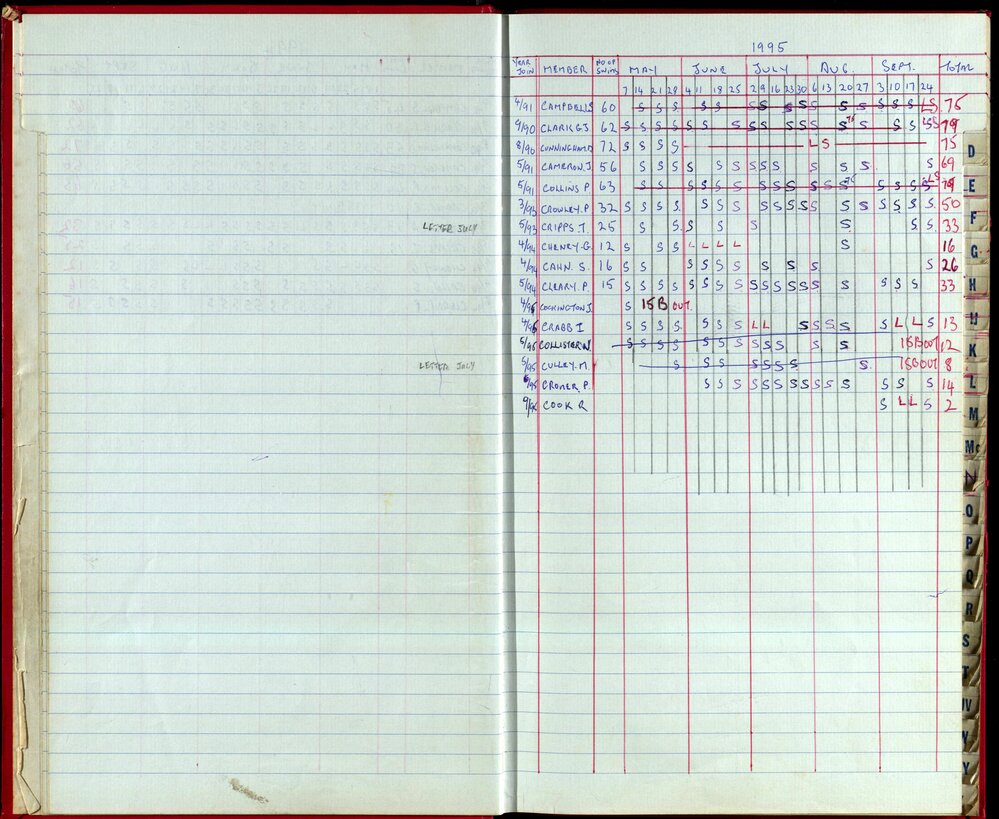 1995
YEAR JOIN MEMBER NO OF SWIMS MAY JUNE JULY AUG. SEPT. TOTAL
7 14 21 28 4 11 18 25 2 9 16 23 30 6 13 20 27 3 10 17 24
4/91 CAMPBELL S 60 S S S S S S S S S S S S S S S LS 75
4/90 CLARK G.J. 62 S S S S S S S S S S S S S S 75 S S S LS S 79
8/90 CUNNINGHAM.D 72 S S S S L S 75
5/91 CAMERON.J. 56 S S S S S S S S S S S S 69
5/91 COLLINS P 63 S S S S S S S S S S S S S S 75 S S S S LS 79
3/93 CROWLEY.P 32 S S S S S S S S S S S S S S S S S S 50
LETTER JULY 5/93 CRIPPS.T. 25 S S S S S S S S 33
4/94 CHENEY.G. 12 S S S L L L L S 16
4/94 CAHN. S. 16 S S S S S S S S S S 26
5/94 CLEARY. P. 15 S S S S S S S S S S S S S S S S S S 33
4/95 COCKINGTON J. S 15B OUT.
4/95 CRABB I S S S S S S S L L S S S S S L L S 13
5/95 COLLISTER.N. S S S S S S S S S S S S 15BOUT 12
LETTER JULY 5/95 CULLEY.M. S S S S S S S S 15BOUT 8
6/95 CROMER P. S S S S S S S S S S S S S S 14
9/95 COOK R S L L S 2
D
E
F
G
H
K
L
M
Mc
N
O
P
Q
R
S
T
Y